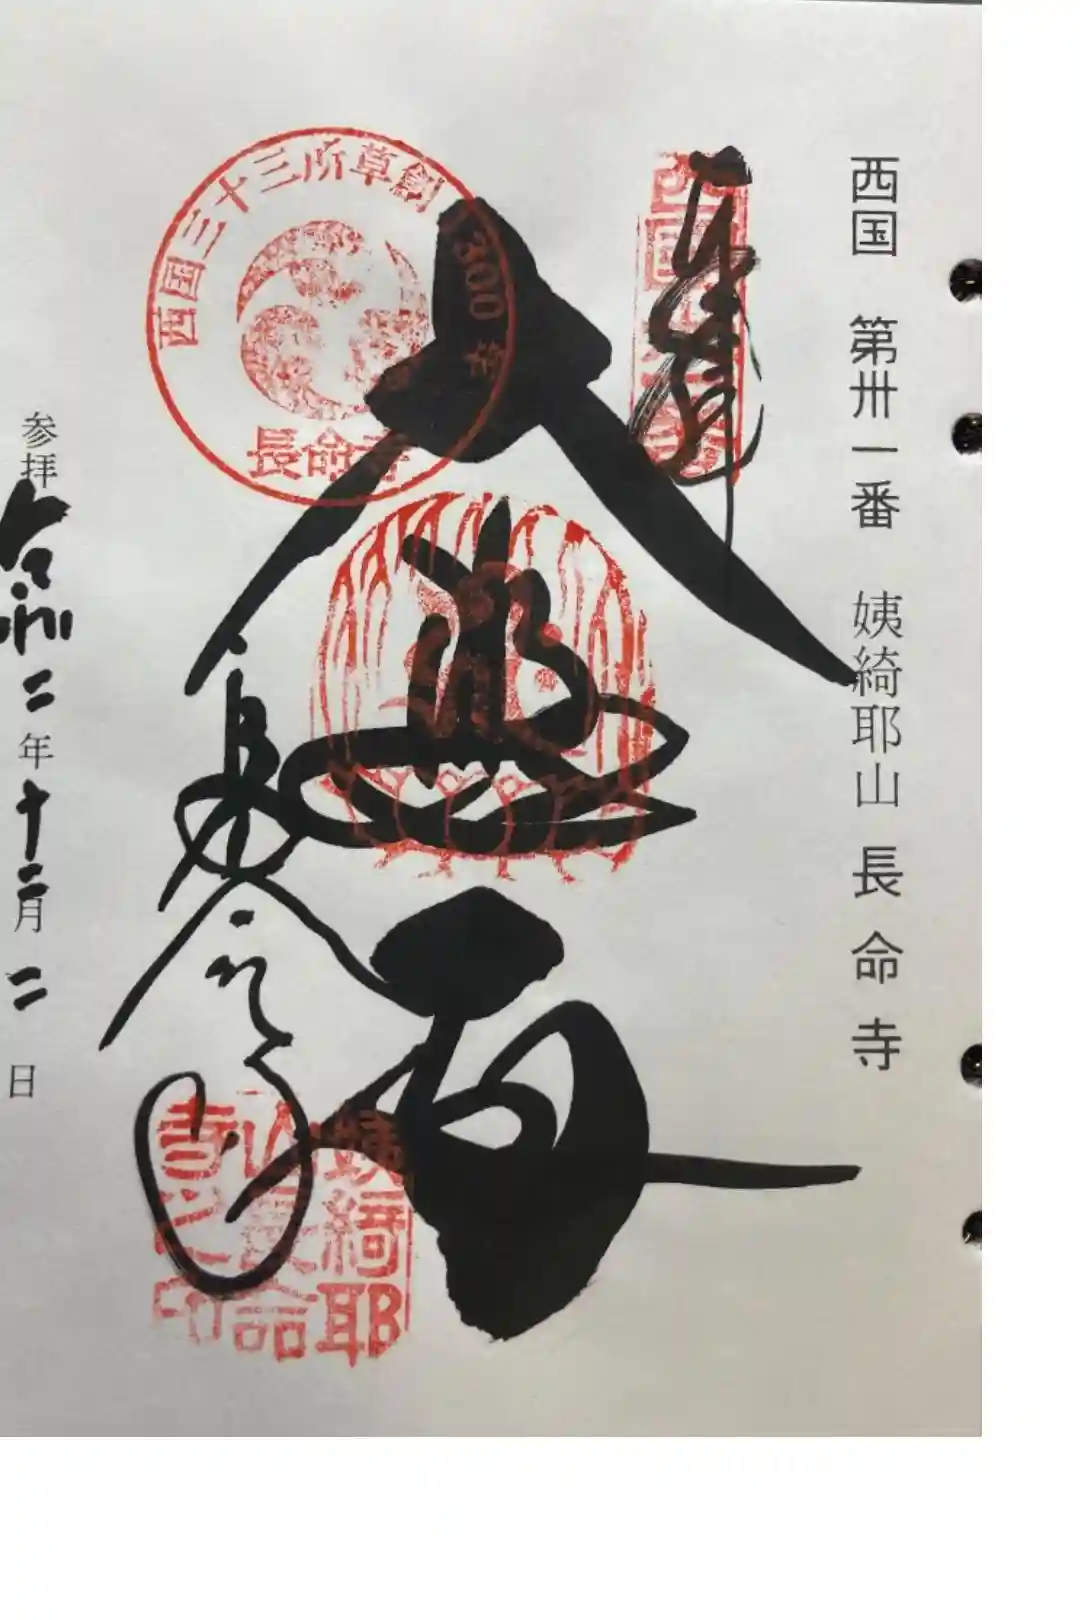 西国 第卅一番 姨綺耶山 長命寺
奉拝
大悲殿
長命寺
西国三十三所草創1300年
長命寺
姨綺耶山長命寺之印
参拝 令和二年十二月二日